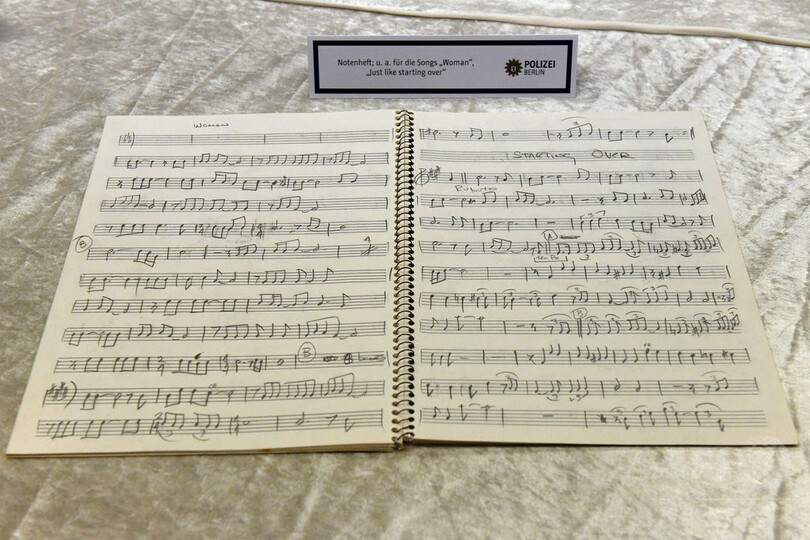 Notenheft; u. a. für die Songs „Woman“,
„Just like starting over“
POLIZEI
BERLIN
Woman
B
4
B
3
STARTING OVER
Rubato
A
B